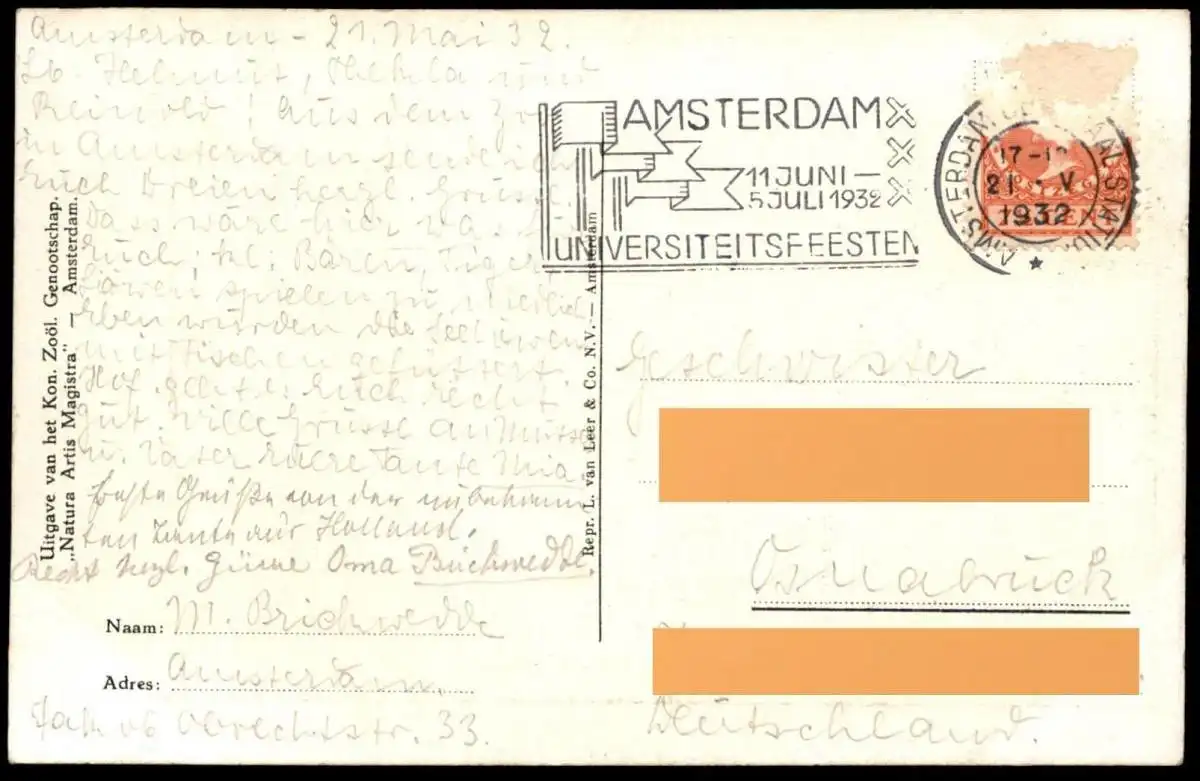 Amsterdam - 21. Mai 32.
Lb. Helmut, Thekla und
Reinold! Aus dem Zoo
in Amsterdam sende ich
Euch Dreien herzl. Grüsse.
Das wäre hier was für
Euch; kl. Bären, Tiger,
Löwen spielen zu niedlich
Eben wurden die Seelöwen
mit Fischen gefüttert.
Hof. geht's Euch recht
gut. Viele Grüsse an Mutter
u. Vater Eure Tante Mia
Grüße von der unbekann-
ten Tante aus Holland.
Recht herzl. Oma
Naam: M.
Adres: Amsterdam.
Jakob Obrechtstr. 33.
Uitgave van het Kon. Zoöl. Genootschap.
„Natura Artis Magistra" — Amsterdam.
Repr. L. van Leer & Co. N.V. — Amsterdam
AMSTERDAM XXX
11 JUNI —
5 JULI 1932
UNIVERSITEITSFEESTEN
AMSTERDAM STATION
21 V
1932
Geschwister
Osnabrück
Deutschland.